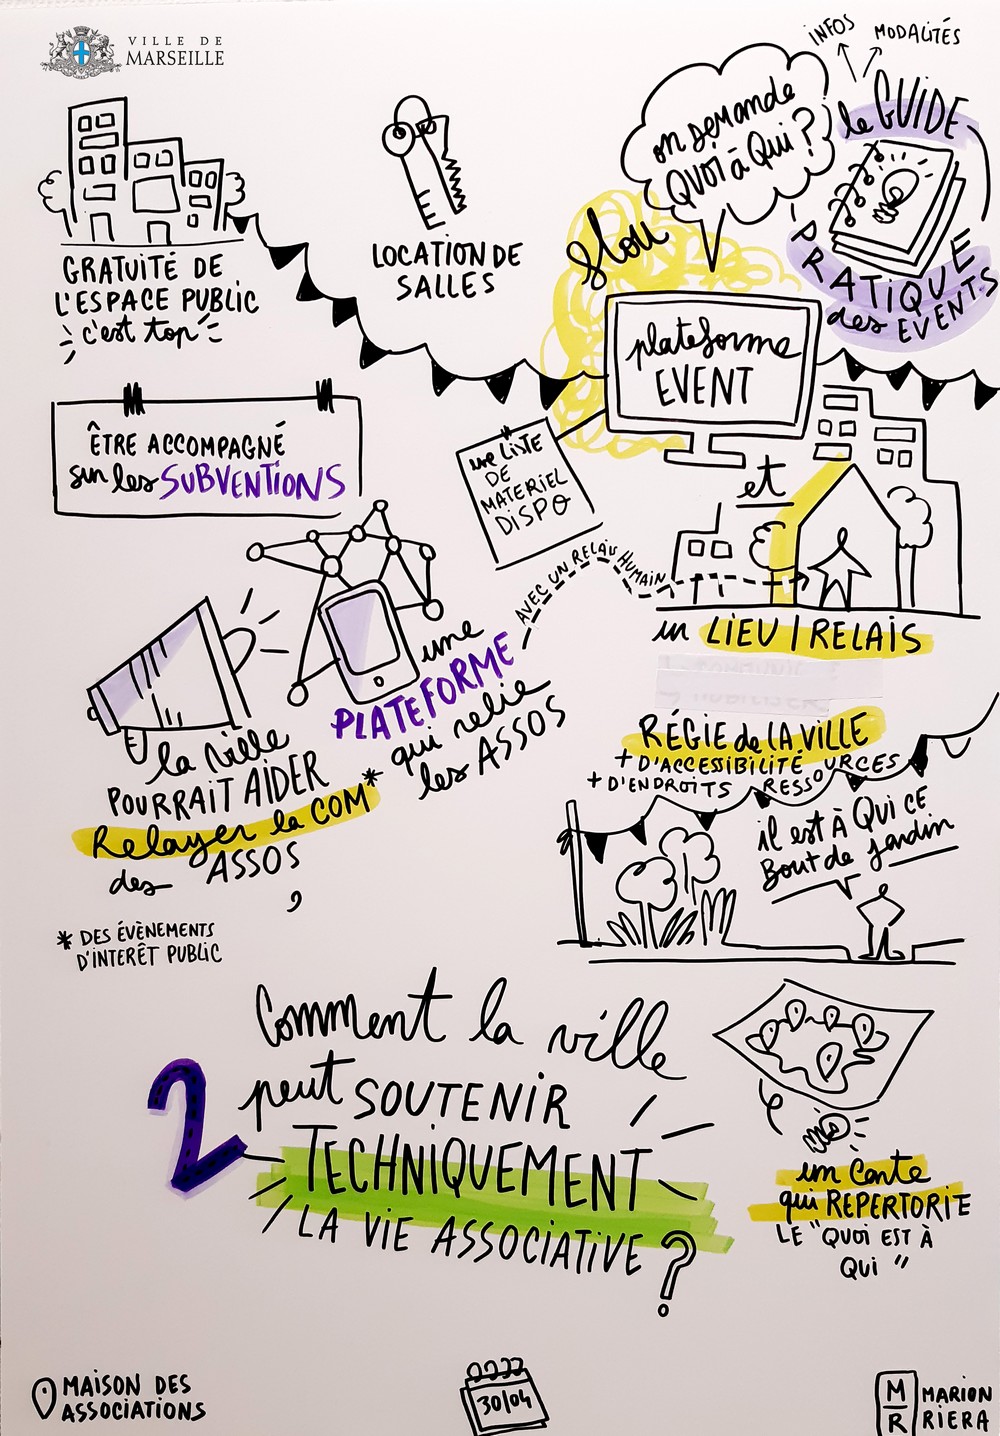 VILLE DE
MARSEILLE
INFOS
MODALITÉS
le GUIDE
PRATIQUE
des EVENTS
on DEMANDE
QUOi à Qui ?
flou
plateforme
EVENT
GRATUITÉ DE
L'ESPACE PUBLIC
c'est top
LOCATION DE
SALLES
ÊTRE ACCOMPAGNÉ
sur les SUBVENTIONS
une LISTE
DE
MATERIEL
DISPO
et
AVEC UN RELAIS HUMAIN
un LIEU / RELAIS
une
PLATEFORME
qui relie
les ASSOS
la Ville
POURRAIT AIDER
Relayer la COM*
des ASSOS
* DES ÉVÈNEMENTS
D'INTERÊT PUBLIC
RÉGIE de LA VILLE
+ D'ACCESSIBILITÉ
+ D'ENDROITS RESSOURCES
il est À QUI CE
Bout de Jardin
Comment la ville
2
peut SOUTENIR
TECHNIQUEMENT
LA VIE ASSOCIATIVE ?
un Carte
qui REPERTORIE
LE "QUOI EST À
QUI"
MAISON DES
ASSOCIATIONS
30/04
M
R
MARION
RIERA